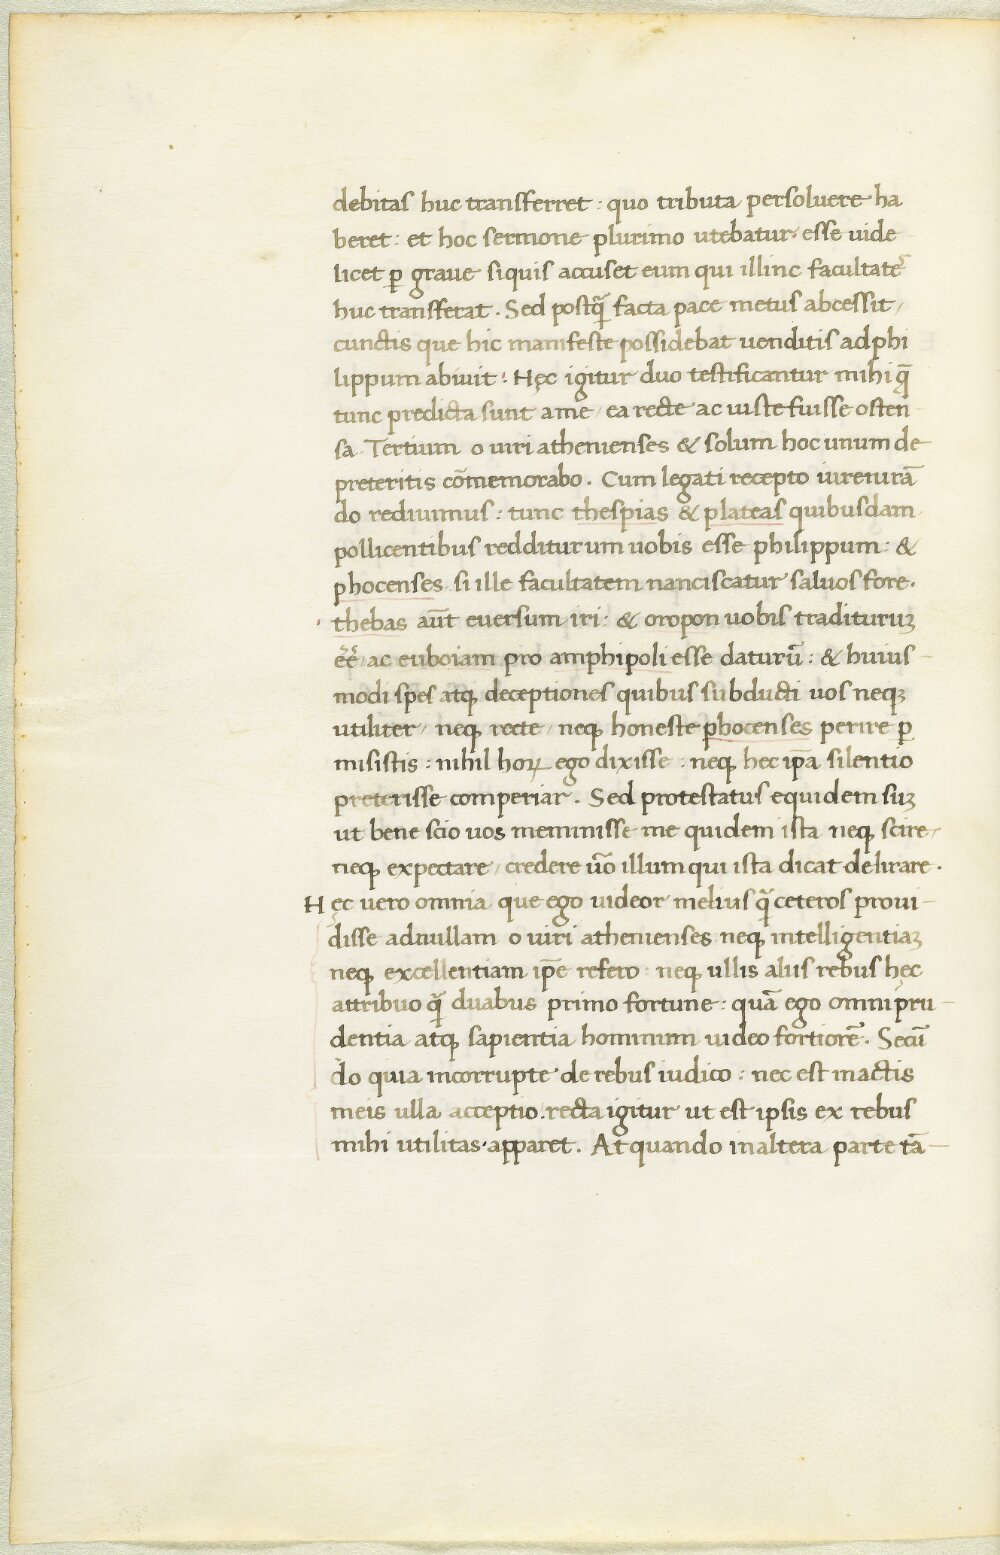 debitas huc transferret : quo tributa persoluere ha
beret : et hoc sermone plurimo utebatur · esse uide
licet ꝑ graue siquis accuset eum qui illinc facultatē
huc transferat . Sed postq̄ facta pace metus abcessit /
cunctis que hic manifeste possidebat uenditis ad phi
lippum abiuit : Hęc igitur duo testificantur mihi q̄
tunc predicta sunt a me / ea recte ac iuste fuisse osten
sa . Tertium o uiri athenienses & solum hoc unum de
preteritis cōmemorabo . Cum legati recepto iureiurā
do rediuimus : tunc thespias & plateas quibusdam
pollicentibus redditurum uobis esse philippum : &
phocenses si ille facultatem nanciscatur saluos fore .
thebas aūt euersum iri : & oropon uobis tradituruꝫ
ēē / ac euboiam pro amphipoli esse daturū : & huius
modi spes atqꝫ deceptiones quibus subducti uos neqꝫ
utiliter / neqꝫ recte / neqꝫ honeste phocenses perire ꝑ
misistis : nihil hoꝝ ego dixisse : neqꝫ hec ip̄a silentio
preterisse comperiar . Sed protestatus equidem suꝫ
ut bene scio uos meminisse me quidem ista neqꝫ scire /
neqꝫ expectare / credere ūo illum qui ista dicat delirare .
Hęc uero omnia que ego uideor melius q̄ ceteros proui
disse ad nullam o uiri athenienses neqꝫ intelligentiaꝫ
neqꝫ excellentiam ip̄e refero : neqꝫ ullis aliis rebus hęc
attribuo q̄ duabus primo fortune : quā ego omni pru
dentia atqꝫ sapientia hominum uideo fortiorē . Secū
do quia incorrupte de rebus iudico : nec est in actis
meis ulla acceptio . recta igitur ut est ipsis ex rebus
mihi utilitas · apparet . At quando in altera parte tā